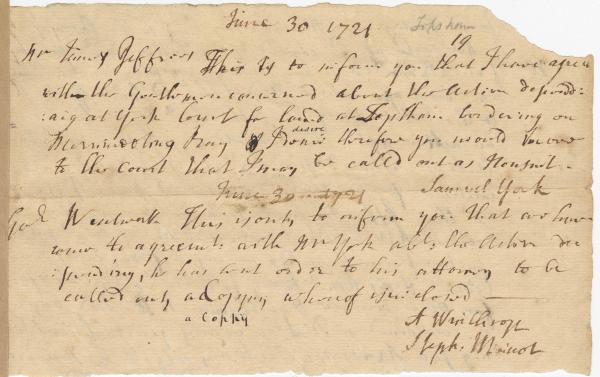 June 30 1721
Topsham
19
Mr James Jeffries This is to inform you that I have agreed
with the Gentlemen concerned about the Action depend:
:aig at York Court for land at Topsham bordering on
Merrimeeting Bay & desire therefore you would move
to the Court that I may be called out as Nonsuit -
Samuel York
June 30 1721
Wentworth This is only to inform you that we have
come to agreemt with Mr York abt the Action de
:pending, he has sent order to his attorney to be
called out, a Coppy whereof is inclosed
a Coppy
A Winthrop
Steph. Minot